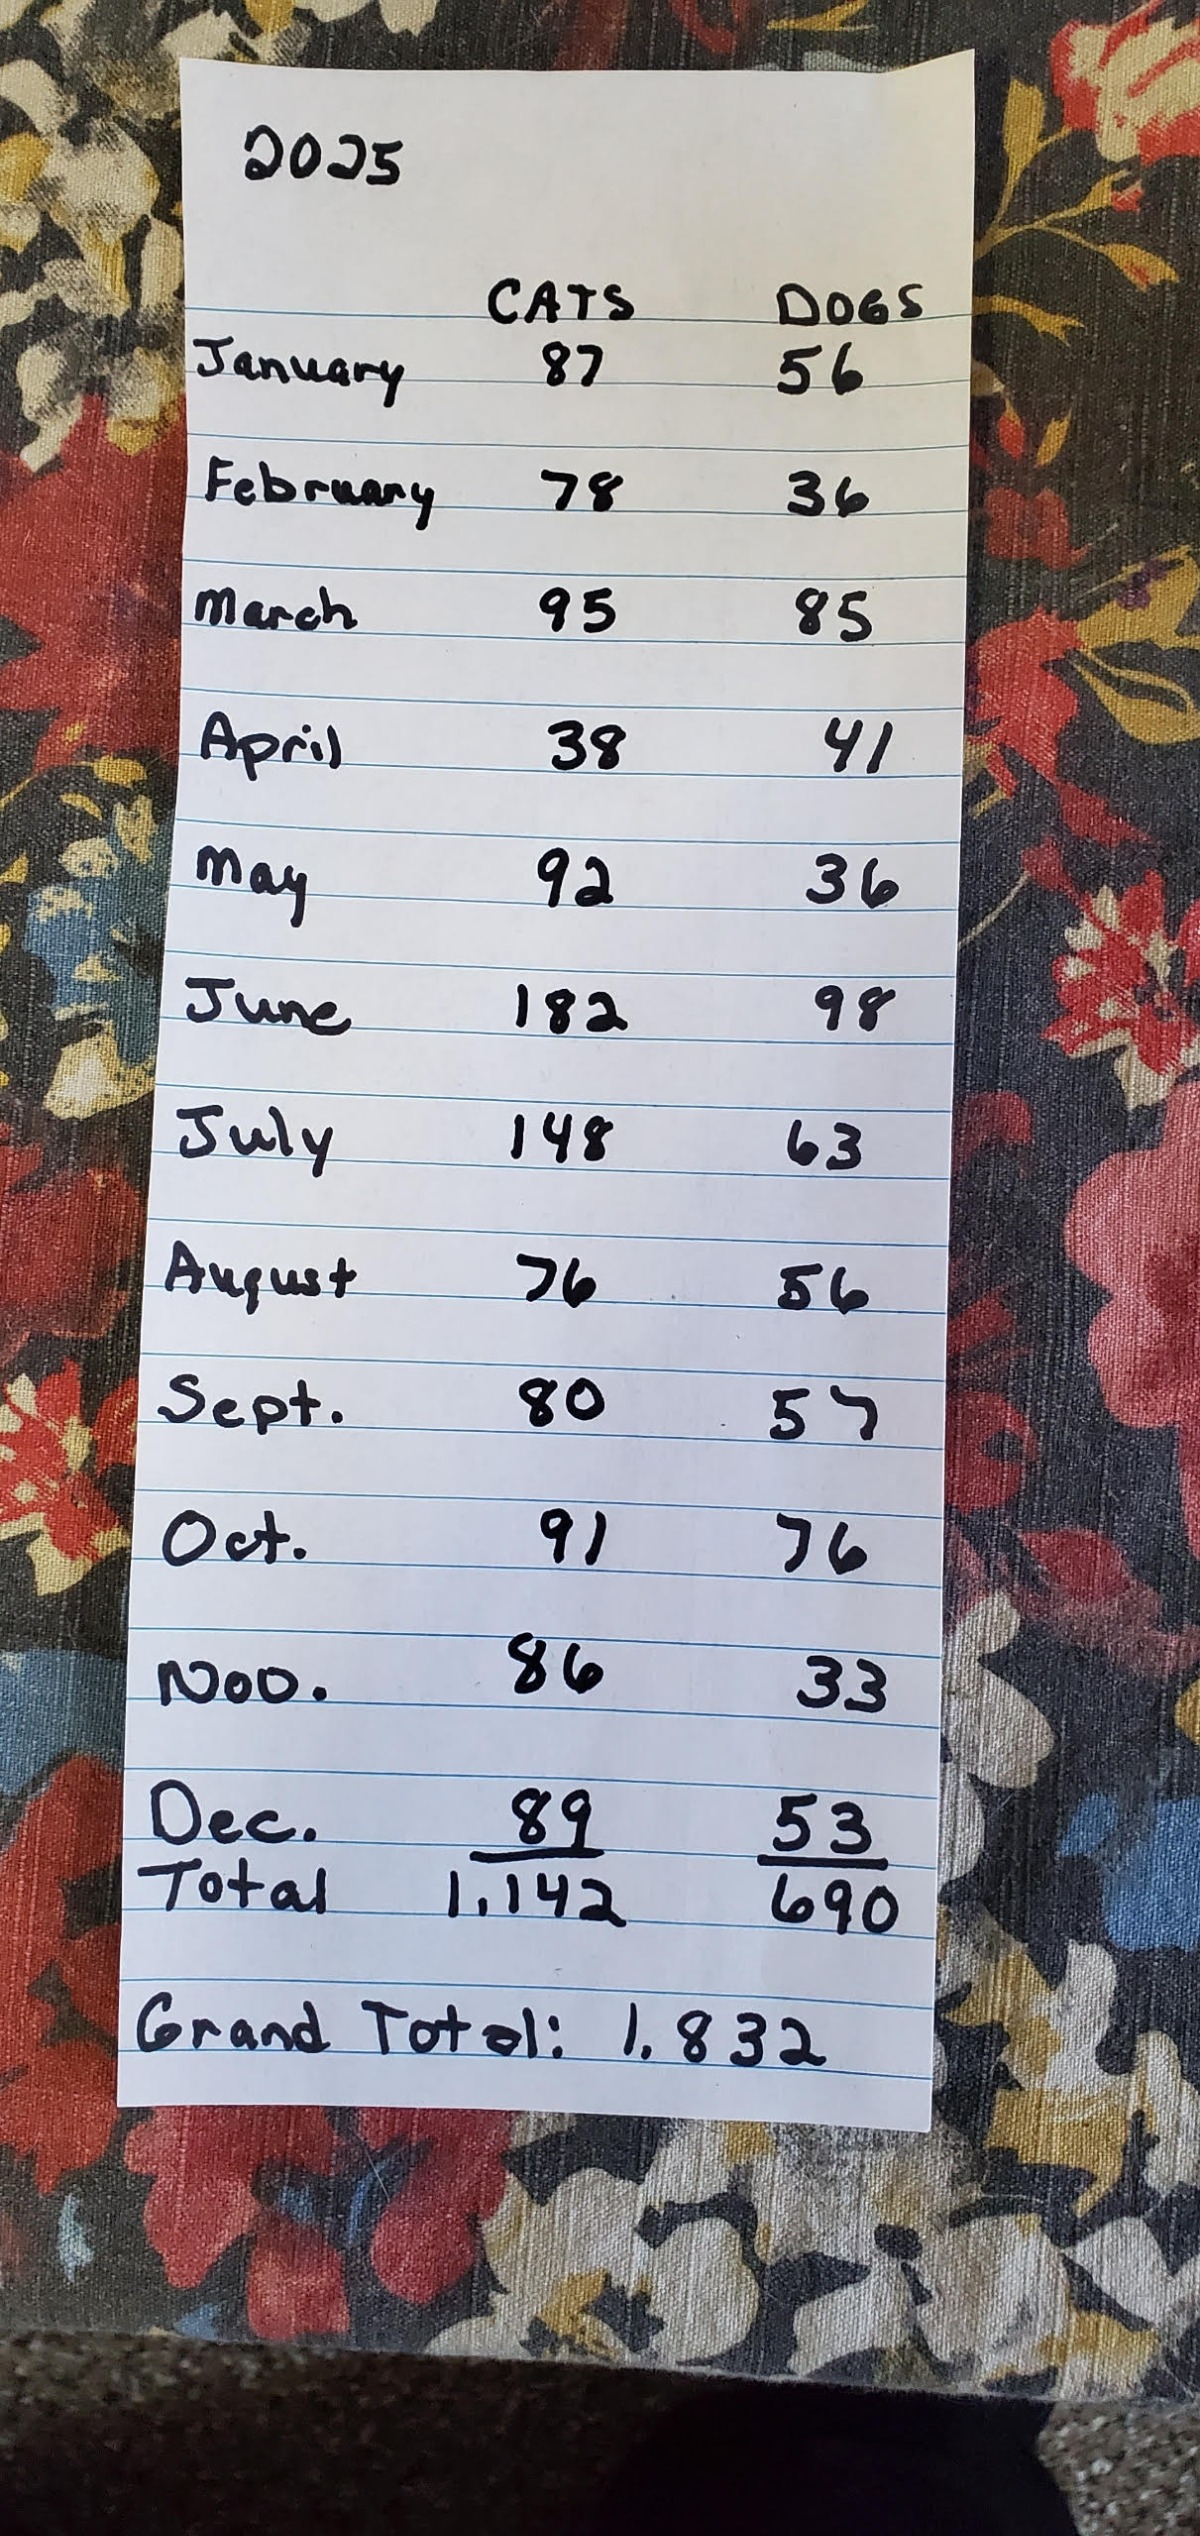 2025
CATS DOGS
January 87 56
February 78 36
March 95 85
April 38 41
May 92 36
June 182 98
July 148 63
August 76 56
Sept. 80 57
Oct. 91 76
Nov. 86 33
Dec. 89 53
Total 1,142 690
Grand Total: 1,832